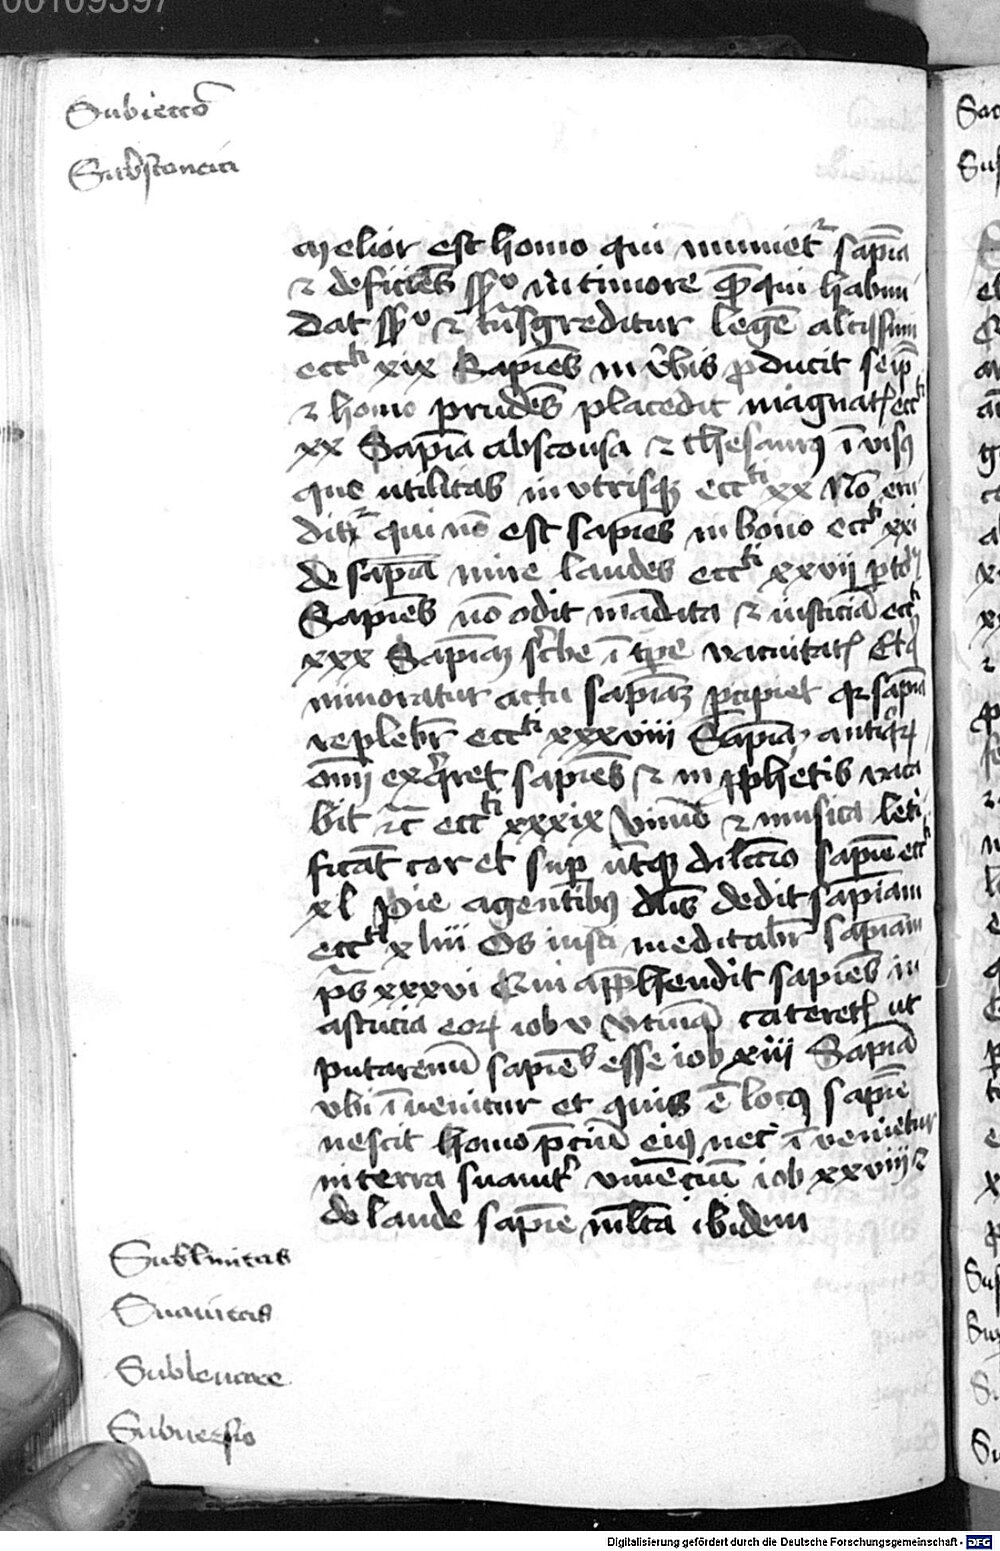 00109397
Subiectio
Substancia
Melior est homo qui minuet(ur) sapia
et deficiens ssu in timore qui habun
dat ssu et tnsgreditur legem altissimi
eccti xix Sapiens in vbis producit seip
et homo prudens placebit magnat eccti
xx Sapia absconsa et thesaurus invisus
que utilitas in utrisque eccti xx No eru
ditr qui no est sapiens in bono eccti xxi
de sapia mire laudes eccti xxvii
Sapiens no odit madata et iusticia eccti
xxx Sapiam scbe i tpe vacuitat Et q
minoratur actu sapiam pcipiet qr sapia
replebr eccti xxxviii Sapiam antiqr
omi exqret sapiens et in pphetis vaca
bit etc eccti xxxix Vinum et musica leti
ficat cor et sup utque dilectio sapie eccti
xl Pie agentibus dns dedit sapiam
eccti xliii Os iusti meditabr sapiam
ps xxxvi Qui apphendit sapiens in
astucia eor iob v Utinam taceretis ut
putaremini sapiens esse iob xiii Sapia
vbi invenitur et quis e locus sapie
nescit homo pcium eius nec invenietur
in terra suavit vivencium iob xxviii et
de laude sapie multa ibidem
Sublimitas
Suauitas
Subleuare
Subuersio
Digitalisierung gefördert durch die Deutsche Forschungsgemeinschaft - DFG